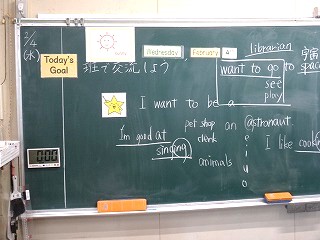 2/4
(水)
Today's
Goal
Wednesday February 4
班で交流しよう
librarian
宇宙
want to go to space
see
play
I want to be a
pet shop
clerk
an astronaut
I'm good at
singing
animals
a
e
i
u
o
I like cooking